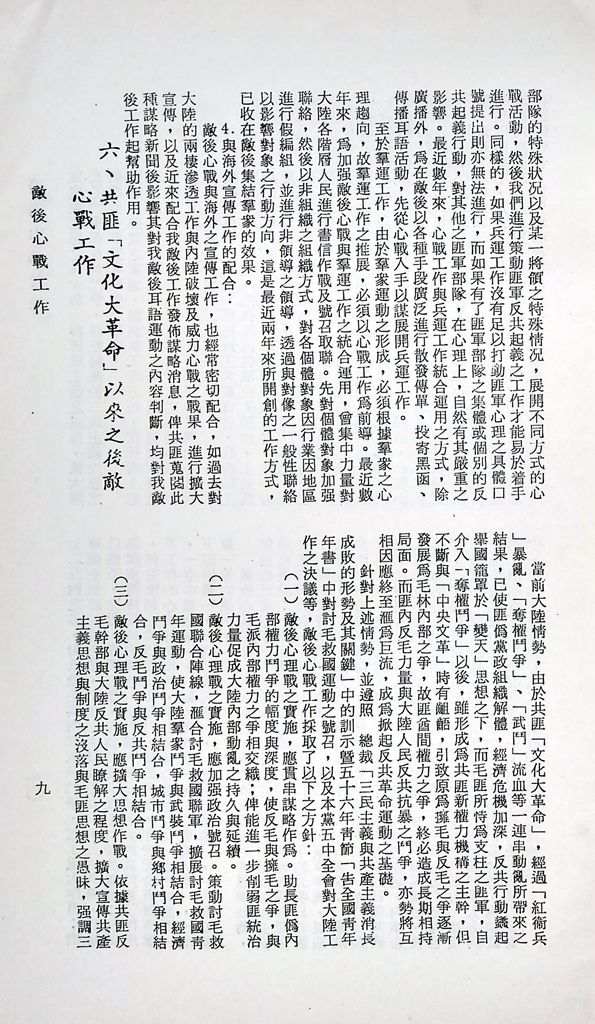 部隊的特殊狀況以及某一將領之特殊情况，展開不同方式的心
戰活動，然後我們進行策動匪軍反共起義之工作才能易於着手
進行。同樣的，如果兵運工作沒有足以打動匪軍心理之具體口
號提出則亦無法進行，而如果有了匪軍部隊之集體或個別的反
共起義行動，對其他之匪軍部隊，在心理上，自然有其嚴重之
影響。最近數年來，心戰工作與兵運工作統合運用之方式，除
廣播外，爲在敵後以各種手段廣泛進行散發傳單、投寄黑函、
傳播耳語活動，先從心戰入手以謀展開兵運工作。
至於羣運工作，由於羣衆運動之形成，必須根據羣衆之心
理趨向，故羣運工作之推展，必須以心戰工作爲前導。最近數
年來，爲加強敵後心戰與羣運工作之統合運用，曾集中力量對
大陸各階層人民進行書信作戰及號召取聯。先對個體對象加强
聯絡，然後以非組織之組織方式，對各個體對象因行業因地區
進行假編組，並進行非領導之領導，透過與對像之一般性聯絡
以影響對象之行動方向，這是最近兩年來所開創的工作方式，
已收在敵後集結羣衆的效果。
4.與海外宣傳工作的配合：
敵後心戰與海外之宣傳工作，也經常密切配合，如過去對
大陸的兩棲滲透工作與內陸破壞及威力心戰之戰果，進行擴大
宣傳，以及近來配合我敵後工作發佈謀略消息，俾共匪蒐閱此
種謀略新聞後影響其對我敵後耳語運動之內容判斷，均對我敵
後工作起幫助作用。
六、共匪「文化大革命」以來之後敵
心戰工作
當前大陸情勢，由於共匪「文化大革命」，經過「紅衞兵
」暴亂、「奪權鬥爭」、「武鬥」流血等一連串動亂所帶來之
結果，已使匪僞黨政組織解體，經濟危機加深，反共行動蠭起
舉國籠罩於「變天」思想之下，而毛匪所恃爲支柱之匪軍，自
介入「奪權鬥爭」以後，雖形成爲共匪新權力機構之主幹，但
不斷與「中央文革」時有齟齬，引致原爲擁毛與反毛之爭逐漸
發展爲毛林內部之爭，故匪酋間權力之爭，終必造成長期相持
局面。而匪內反毛力量與大陸人民反共抗暴之鬥爭，亦勢將互
相因應終至滙爲巨流，成爲掀起反共革命運動之基礎。
針對上述情勢，並遵照　總裁「三民主義與共產主義消長
成敗的形勢及其關鍵」中的訓示暨五十六年靑節「告全國靑年
年書」中對討毛救國運動之號召，以及本黨五中全會對大陸工
作之決議等，敵後心戰工作採取了以下之方針：
（一）敵後心理戰之實施，應貫串謀略作爲。助長匪僞內
部權力鬥爭的幅度與深度，使反毛與擁毛之爭，與
毛派內部權力之爭相交織；俾能進一步削弱匪統治
力量促成大陸內部動亂之持久與延續。
（二）敵後心理戰之實施，應加强政治號召。策動討毛救
國聯合陣線，滙合討毛救國聯軍，擴展討毛救國靑
年運動，使大陸羣衆鬥爭與武裝鬥爭相結合，經濟
鬥爭與政治鬥爭相結合，城市鬥爭與鄉村鬥爭相結
合，反毛鬥爭與反共鬥爭相結合。
（三）敵後心理戰之實施，應擴大思想作戰。依據共匪反
毛幹部與大陸反共人民瞭解之程度，擴大宣傳共產
主義思想與制度之沒落與毛匪思想之愚昧，强調三
敵後心戰工作
九